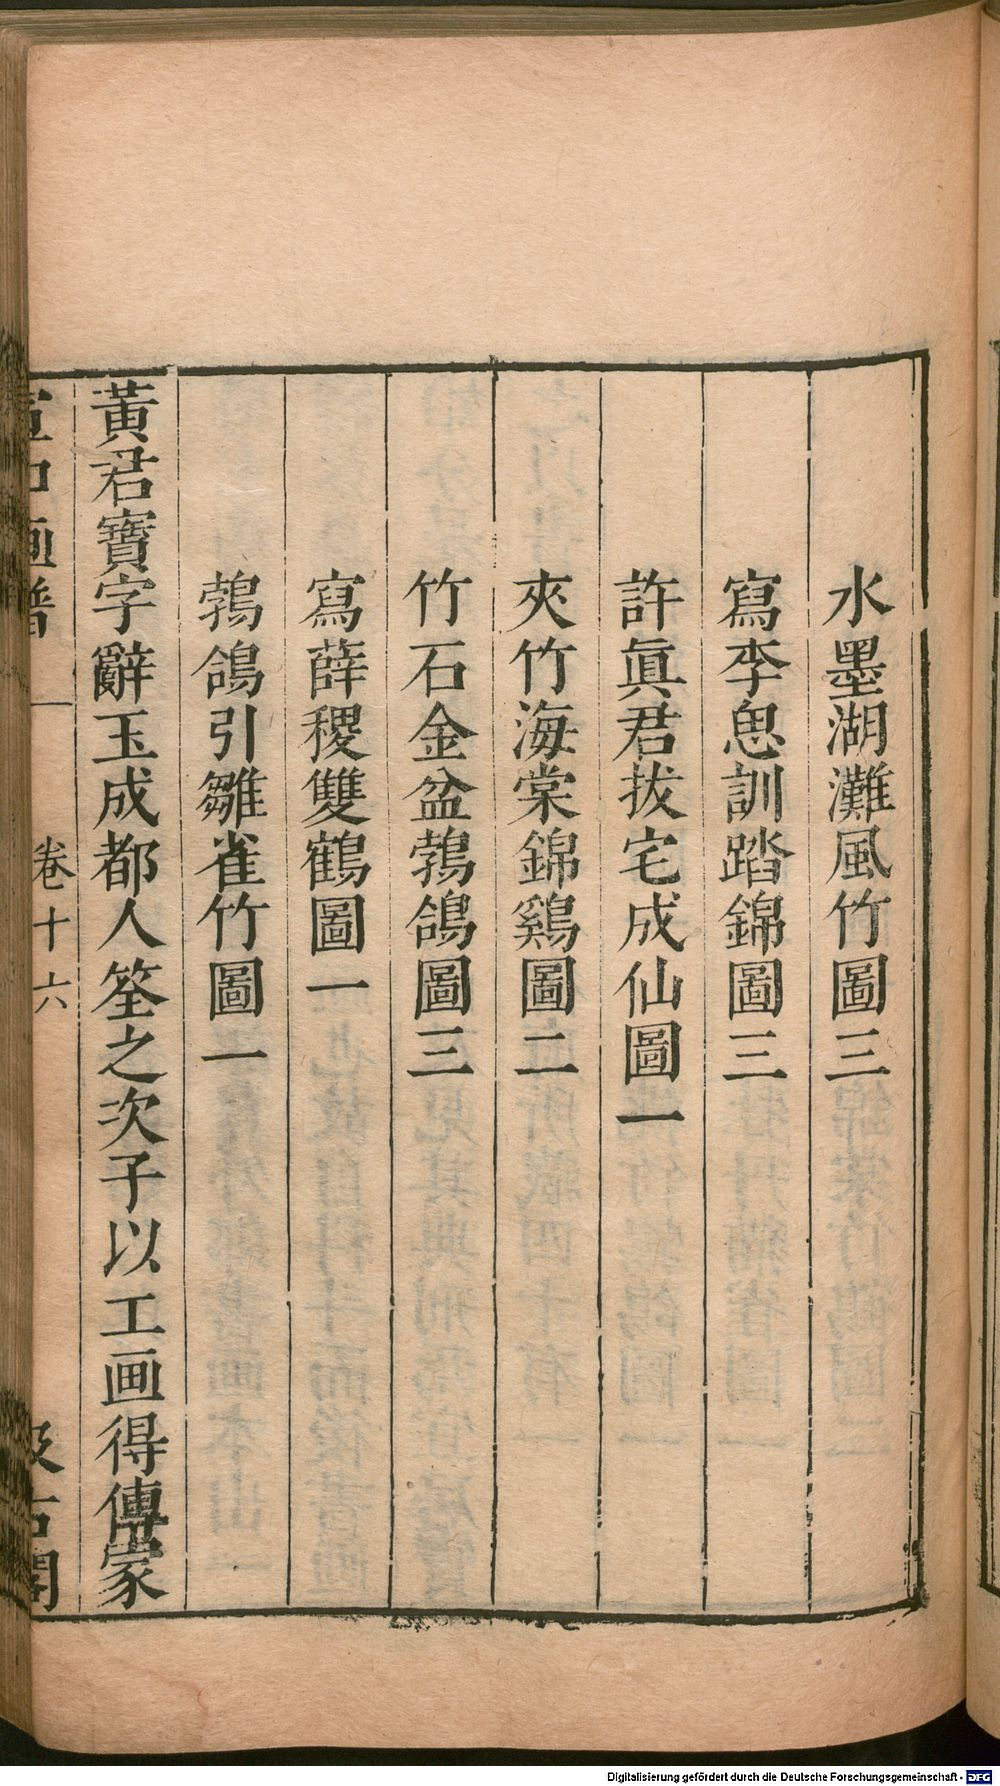 水墨湖灘風竹圖三
寫李思訓踏錦圖三
許眞君拔宅成仙圖一
夾竹海棠錦鷄圖二
竹石金盆鵓鴿圖三
寫薛稷雙鶴圖一
鵓鴿引雛雀竹圖一
黃君寶字辭玉成都人筌之次子以工画得傳家
宣和画譜 卷十六 汲古閣
Digitalisierung gefördert durch die Deutsche Forschungsgemeinschaft - DFG